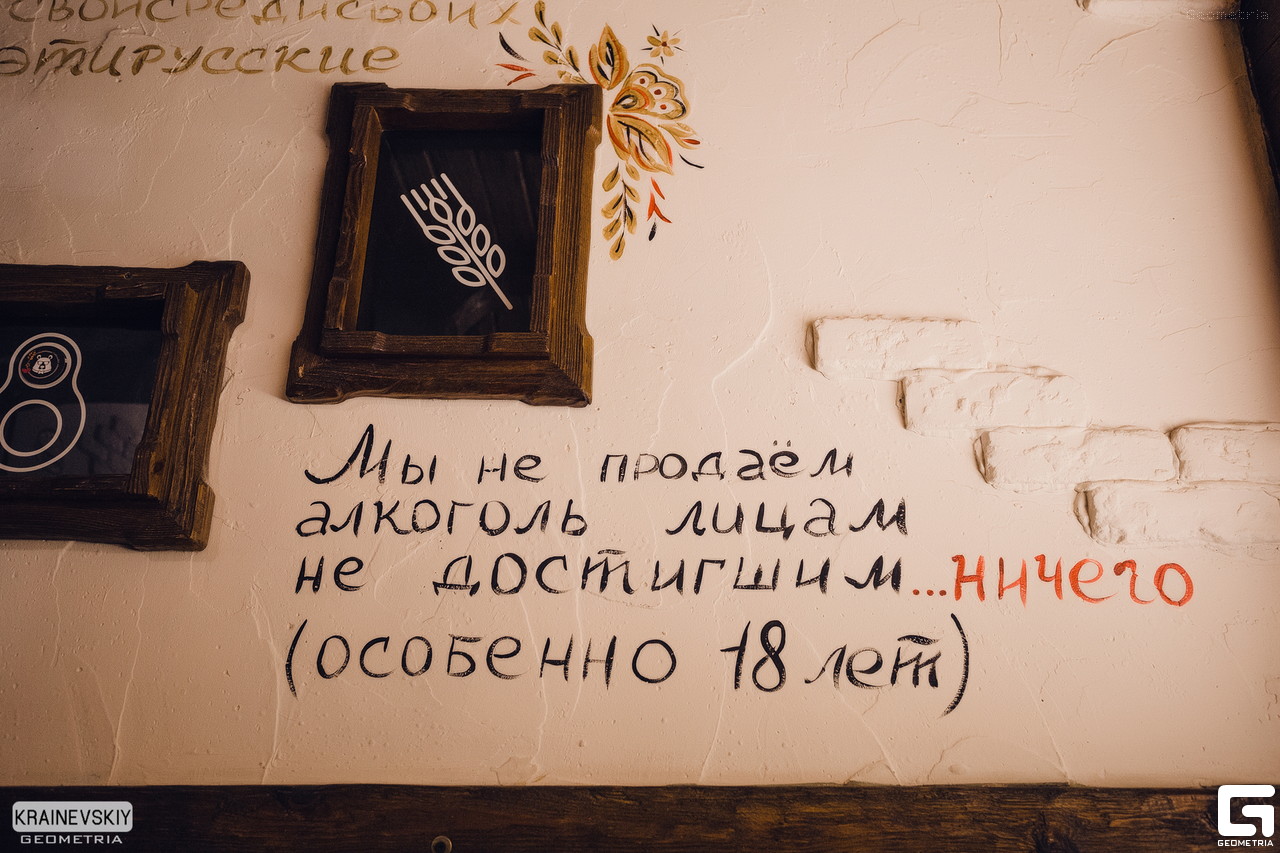 своисредисвоих
этирусские
Geometria
Мы не продаём
алкоголь лицам
не достигшим...ничего
(особенно 18 лет)
KRAINEVSKIY
GEOMETRIA
GEOMETRIA